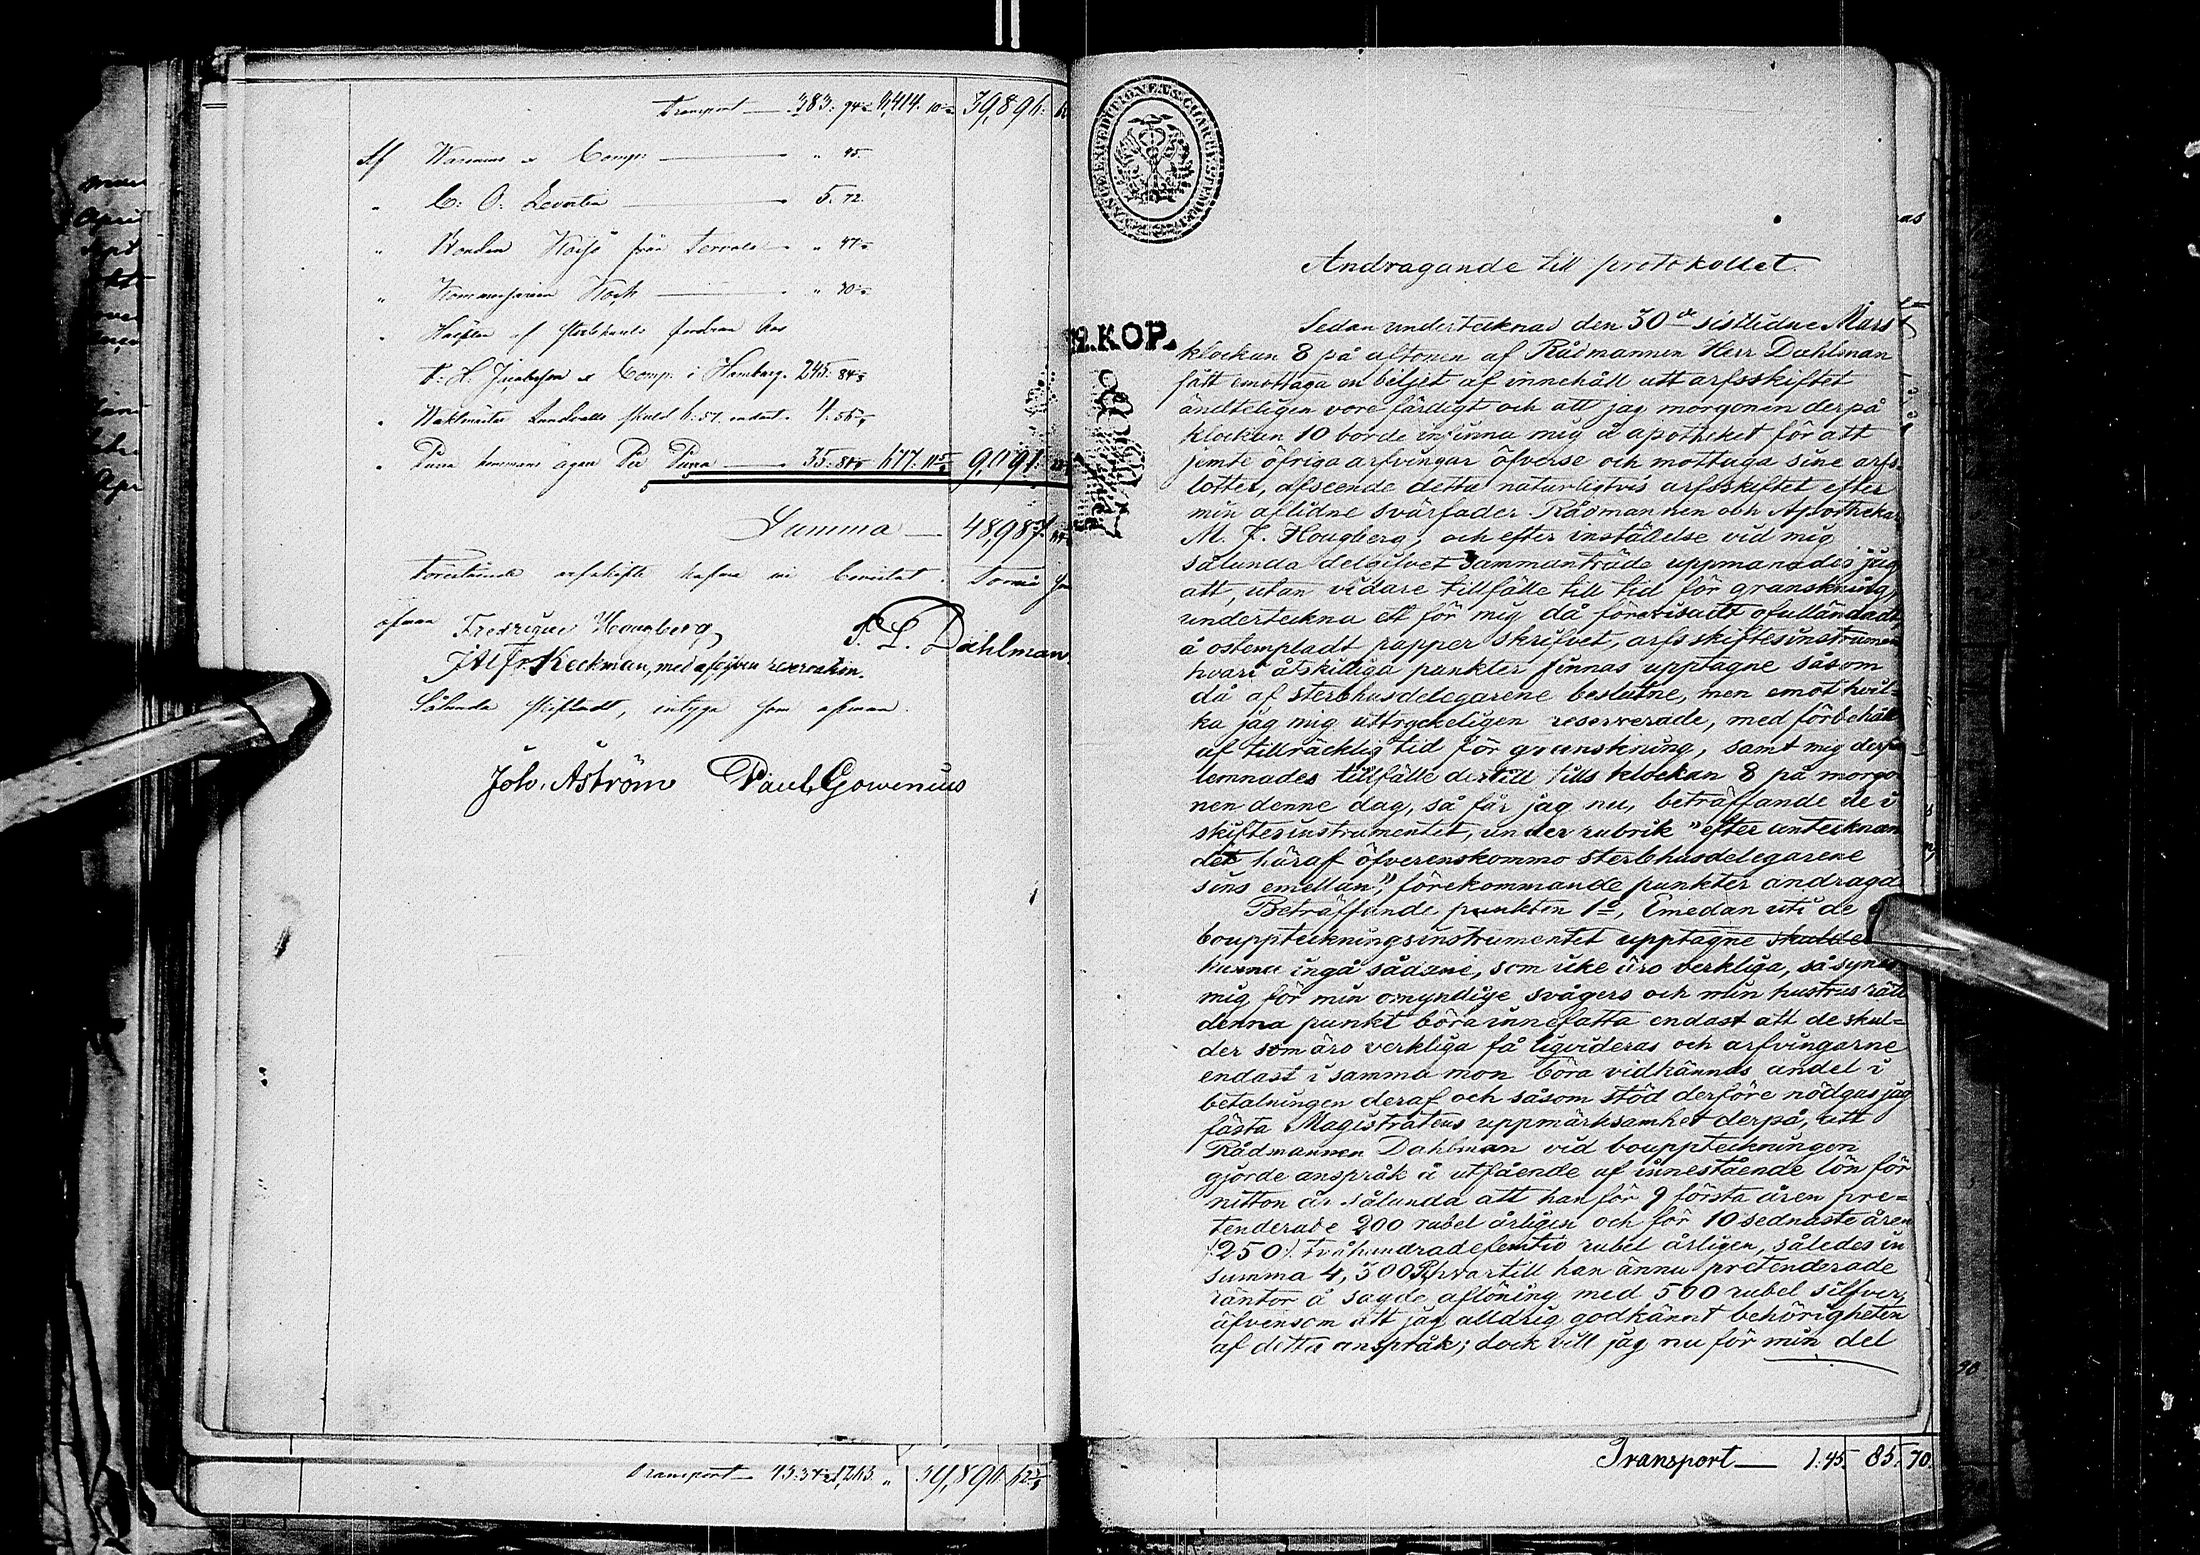 Transport — 383. 94 8,414. 10 39,896.
Af Warenius & Comp: — " 45.
" C: O: Levertin — 5. 72
" Bonden Kaisö från Tervola — " 47
" Kommersarien Koch — " 30
" Hälften af sterbhusets fordran hos
F: H: Jacobsson & Comp: i Hamburg. 245. 84
" Waktmäster Lundvalls skuld 6. 57. endast. 4. 56
" Purra hemmans ägare Per Purra — 35. 84 677. 11 9,091.
Summa — 48,987.
Förestående arfskifte hafva vi bevistat. Torneå som
ofvan Fredrique Hougberg P. L. Dahlman.
J Alfr Keckman, med afgifven reservation.
Sålunda skiftadt, intyga som ofvan.
Joh. Åström Paul Gowenius
Transport — 1,263. " 39,896 62
CHARTÆ
2. KOP.
Andragande till protokollet.
Sedan undertecknad den 30de sistlidne Mars
klockan 8 på aftonen af Rådmannen Herr Dahlman
fått emottaga en biljet af innehåll att arfsskiftet
ändteligen vore färdigt och att jag morgonen derpå
klockan 10 borde infinna mig å apotheket för att
jemte öfriga arfvingar öfverse och mottaga sine arfs-
lotter, afseende detta naturligtvis arfsskiftet efter
min aflidne svärfader Rådmannen och Apothekar
M. J. Hougberg, och efter inställelse vid mig
sålunda delgifvet sammanträde uppmanades jag
att, utan vidare tillfälle till tid för granskning,
underteckna ett för mig då förevisadt ofulländadt,
å ostempladt papper skrifvet, arfsskiftesinstrument
hvari åtskilliga punkter finnas upptagne såsom
då af sterbhusdelegarene beslutne, men emot hvil-
ka jag mig uttryckeligen reserverade, med förbehåll
af tillräcklig tid för granskning, samt mig derpå
lemnades tillfälle dertill tills klockan 8 på morgo-
nen denne dag, så får jag nu, beträffande de i
skiftesinstrumentet, under rubrik "efter anteknan
det häraf öfverenskommo sterbhusdelegarene
sins emellan", förekommande punkter andraga
Beträffande punkten 1o, Emedan uti de
bouppteckningsinstrumentet upptagne skulder
kunna ingå sådane, som icke äro verkliga, så synes
mig för min omyndige svågers och min hustrus rätt
denna punkt böra innefatta endast att de skul-
der som äro verkliga få liqvideras och arfvingarne
endast i samma mon böra vidkännas andel i
betalningen deraf och såsom stöd derföre nödgas jag
fästa Magistratens uppmärksamhet derpå, att
Rådmannen Dahlman vid bouppteckningen
gjorde anspråk å utfående af innestående lön för
nitton år sålunda att han för 9 första åren pre-
tenderade 200 rubel årligen och för 10 sednaste åren
(250). tvåhundradefemtio rubel årligen, således in
summa 4,300 R, hvartill han ännu pretenderade
räntor å sagde aflöning med 500 rubel silfver,
äfvensom att jag alldrig godkännt behörigheten
af dettes anspråk; dock vill jag nu för min del
Transport — 1.45. 85. 70.